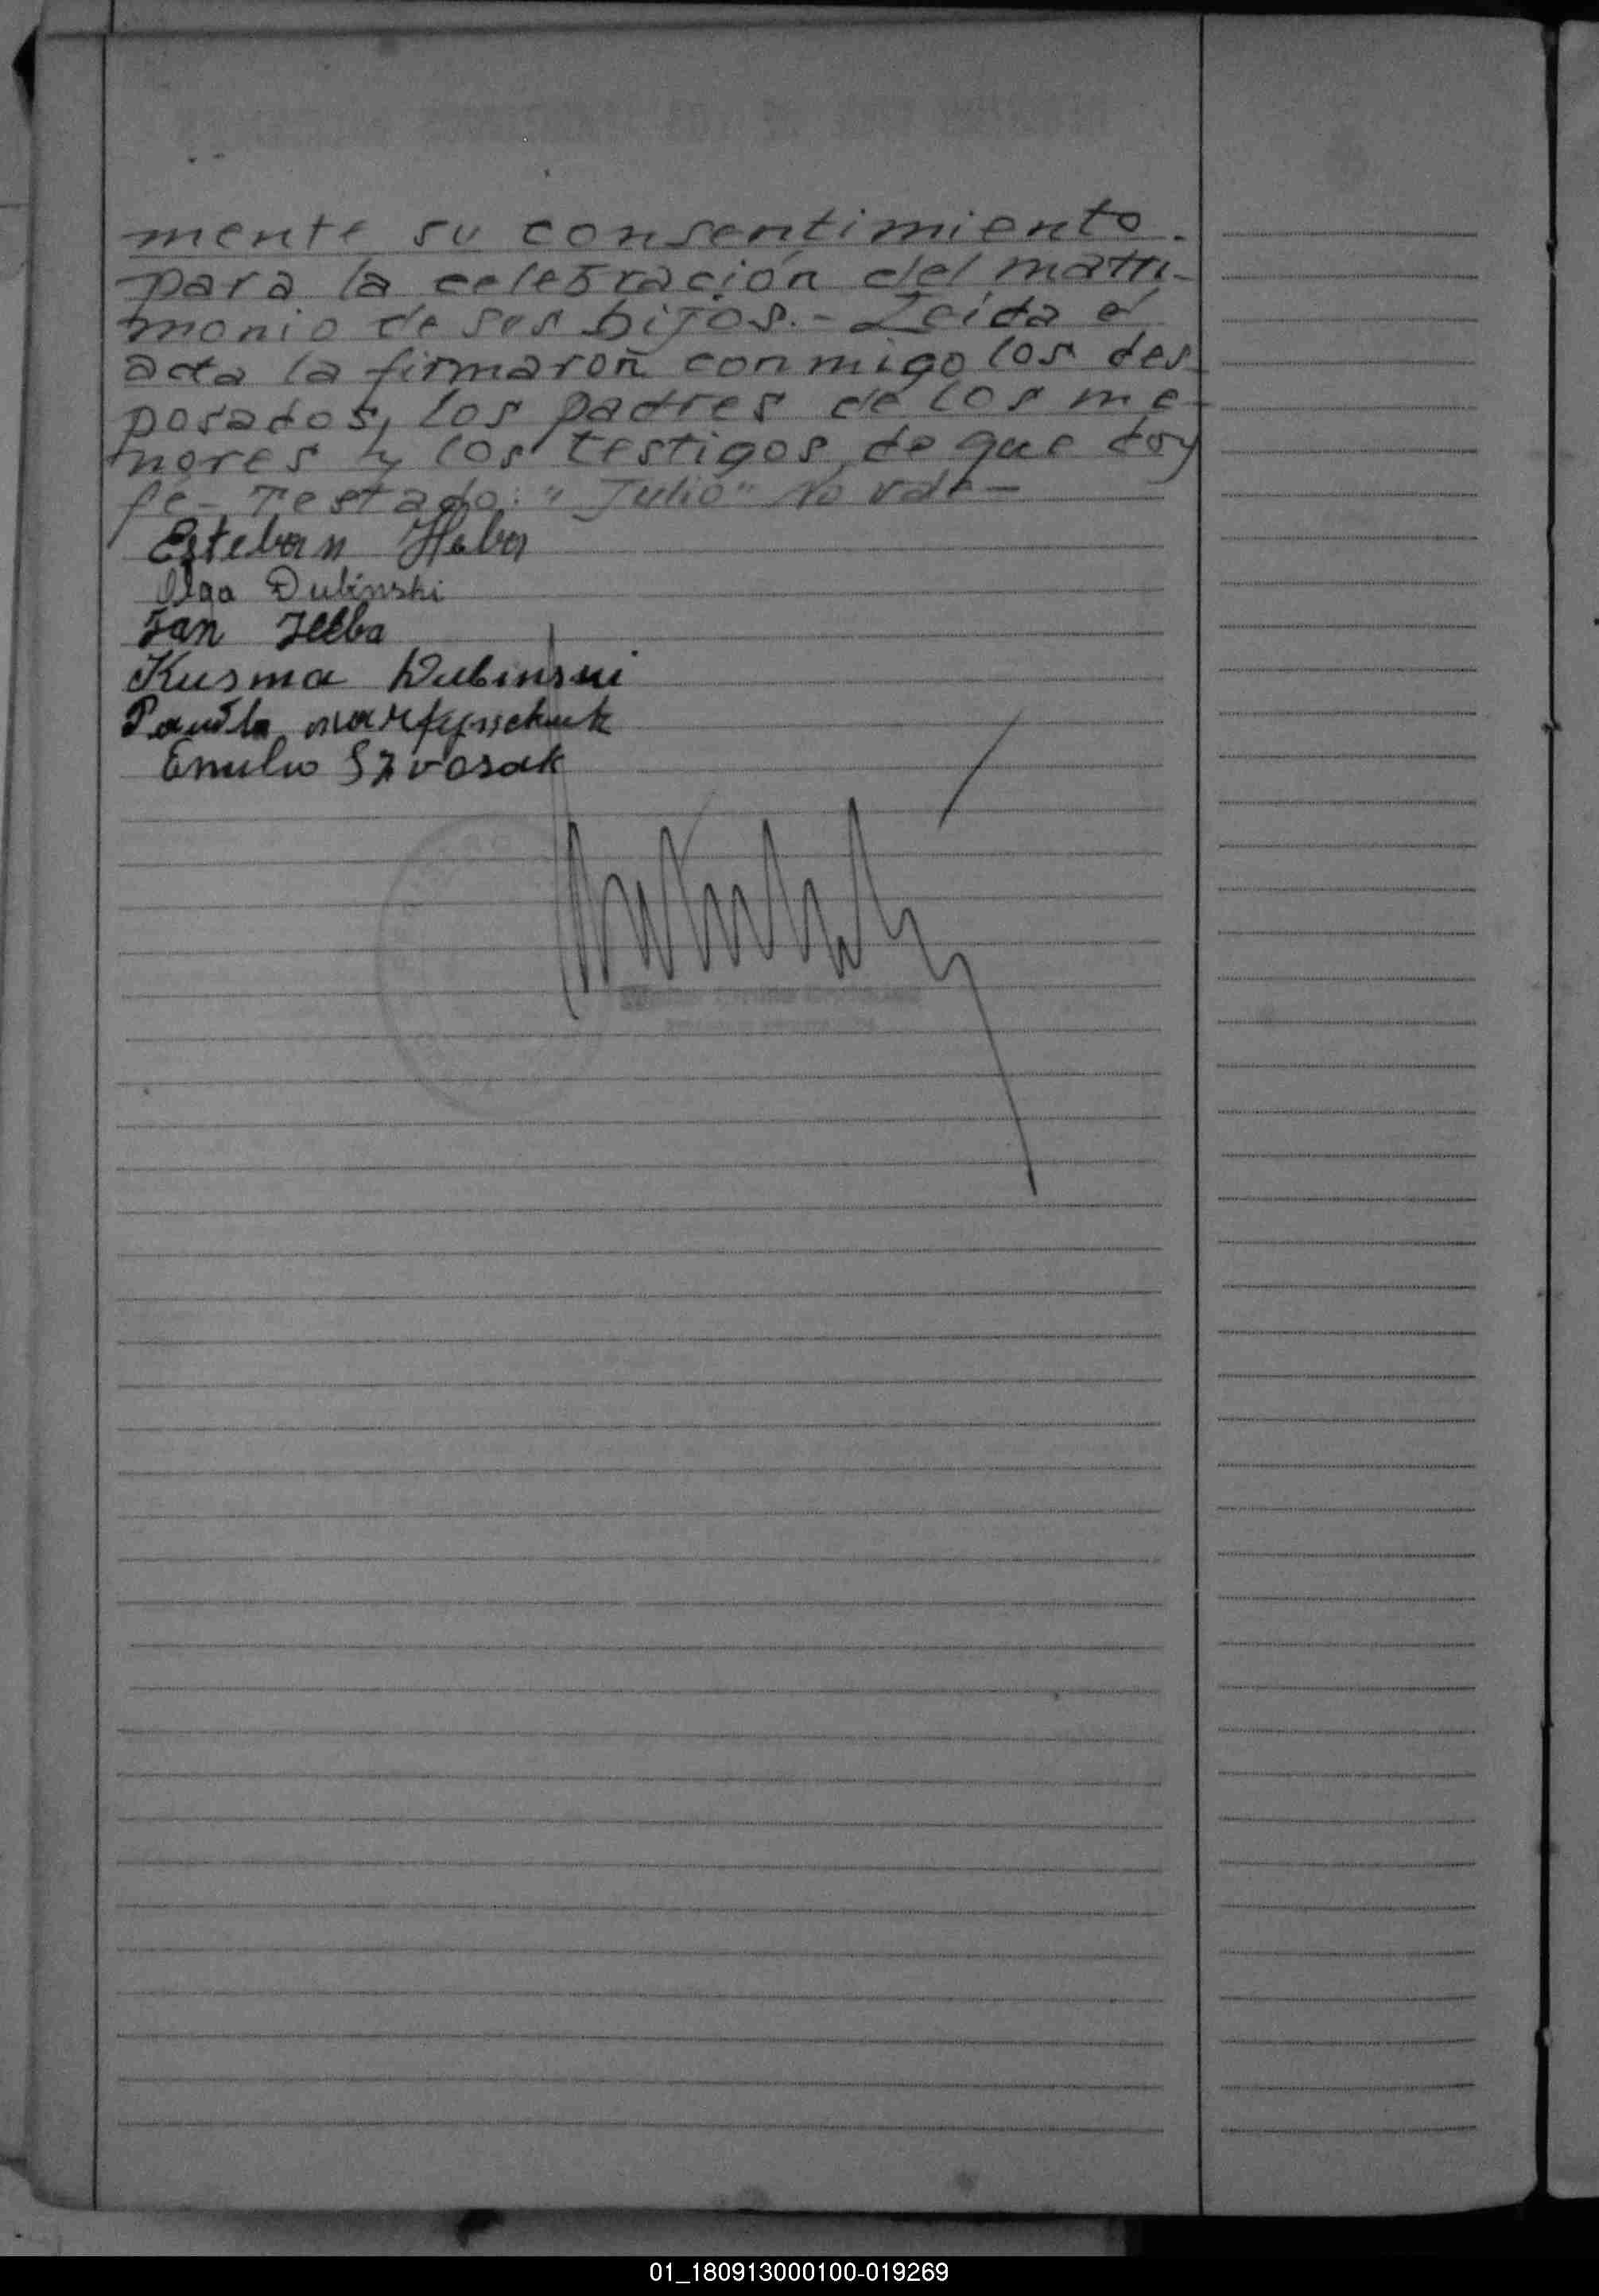 mente su consentimiento
para la celebración del matri-
monio de sus hijos.- Leída el
acta la firmaron conmigo los des-
posados, los padres de los me-
nores y los testigos de que doy
fé- Testado: "Julio" No vale-
Esteban
Olga Dubinski
Jan
Kusma Dubinski
Emilio
01_180913000100-019269